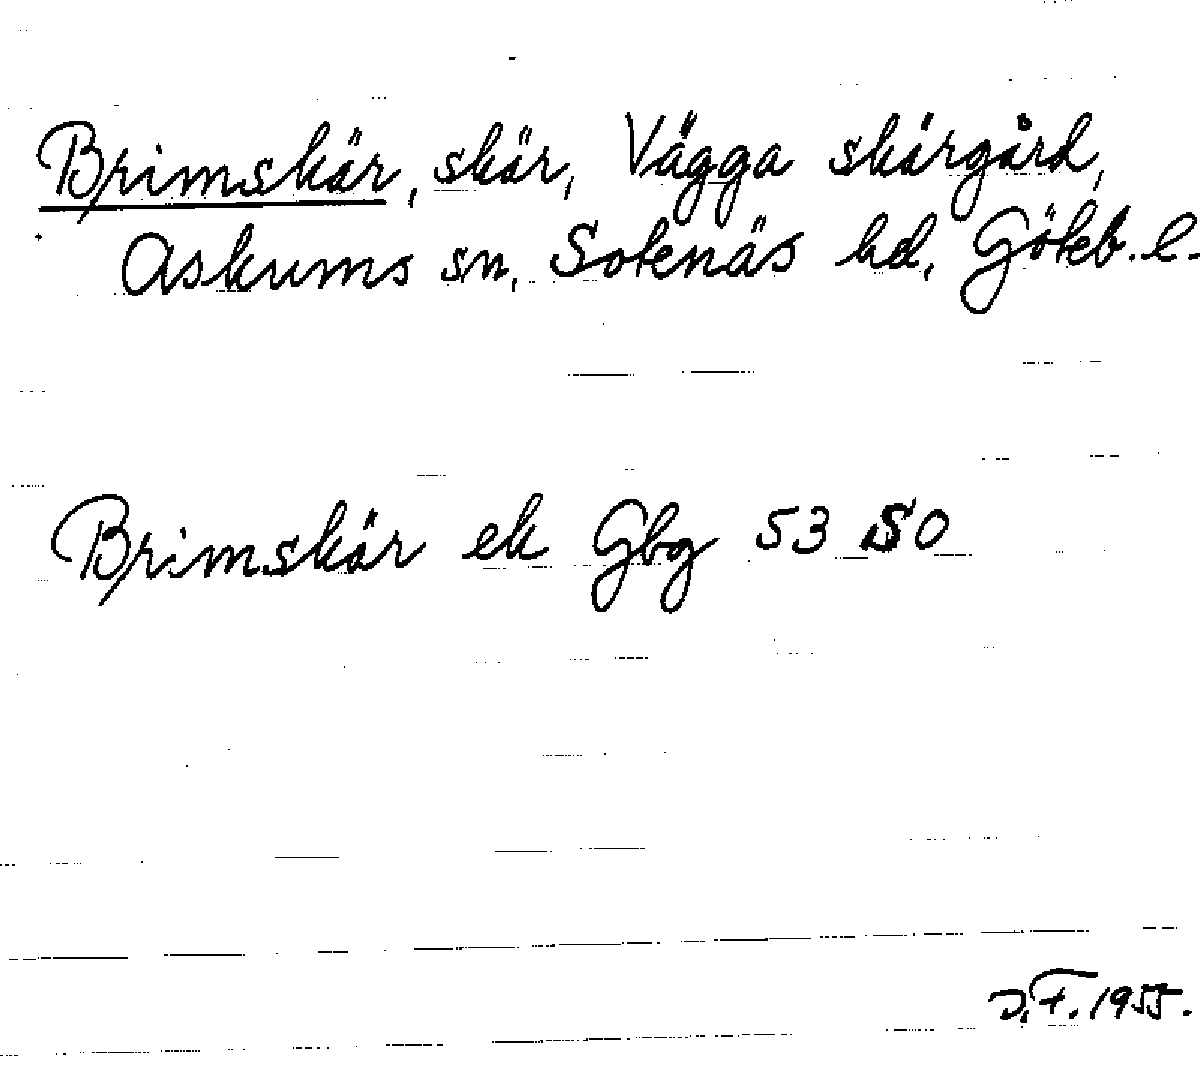 Brimskär, skär, Vägga skärgård,
Askums sn, Sotenäs hd, Göteb. l.
Brimskär ek Gbg 53 SO
J.F. 1955.